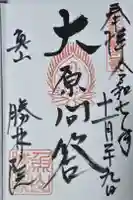 奉拝 令和七年
十一月二十九日
大原問答
魚山
勝林院